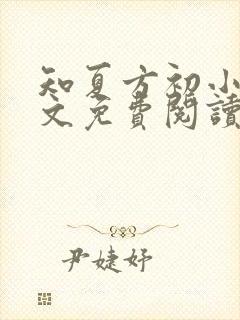 知夏方初小
文免費閱讀
尹婕妤